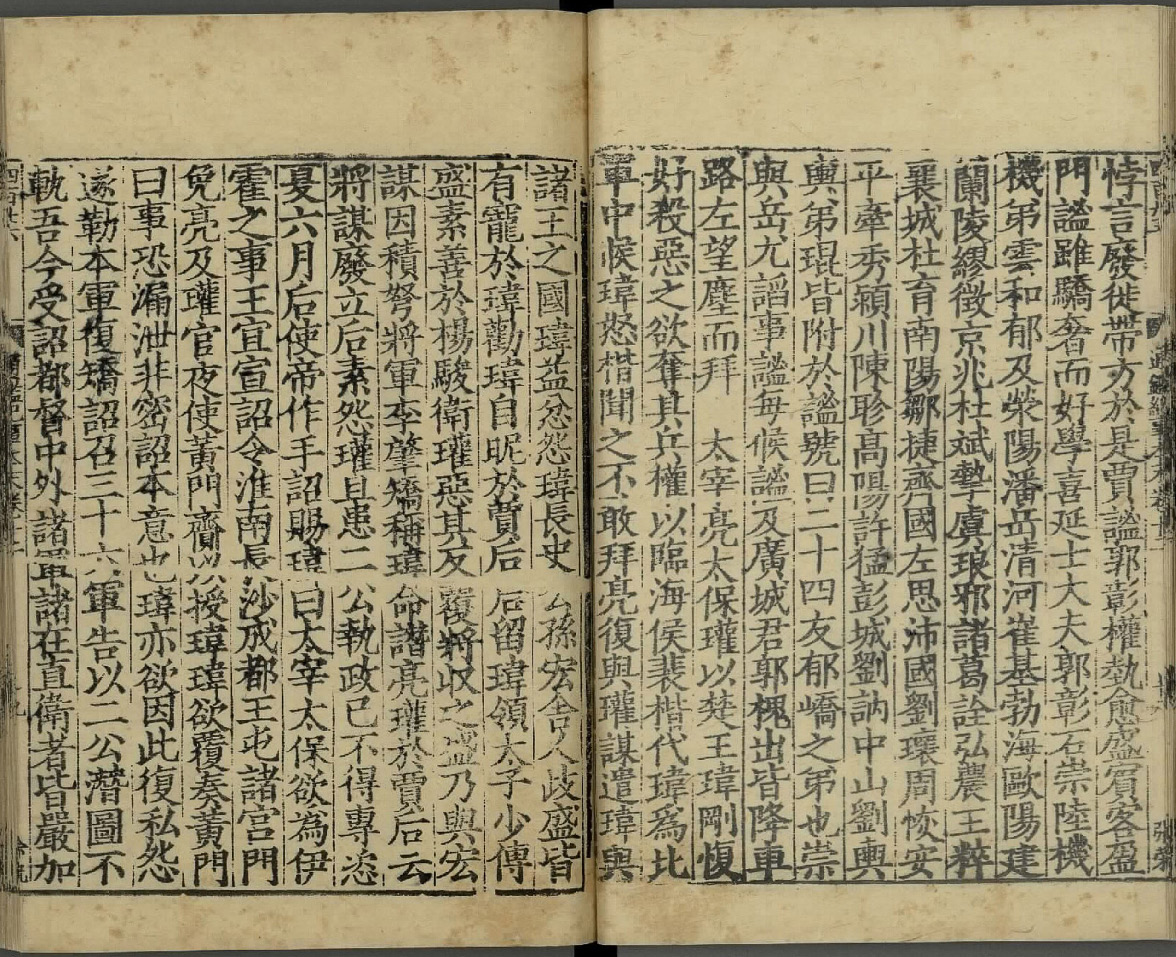 悖言廢徙帶方於是賈謐郭彰權埶愈盛賓客盈
門謐雖驕奢而好學喜延士大夫郭彰石崇陸機
機弟雲和郁及滎陽潘岳清河崔基勃海歐陽建
蘭陵繆徵京兆杜斌摯虞琅邪諸葛詮弘農王粹
襄城杜育南陽鄒捷齊國左思沛國劉瓌周恢安
平牽秀潁川陳眕高陽許猛彭城劉訥中山劉輿
輿弟琨皆附於謐號曰二十四友郁嶠之弟也崇
與岳尤謟事謐每候謐及廣城君郭槐出皆降車
路左望塵而拜 太宰亮太保瓘以楚王瑋剛愎
好殺惡之欲奪其兵權以臨海侯裴楷代瑋爲北
軍中候瑋怒楷聞之不敢拜亮復與瓘謀遣瑋與
諸王之國瑋益忿怨瑋長史公孫宏舍人歧盛皆
有寵於瑋勸瑋自昵於賈后后留瑋領太子少傅
盛素善於楊駿衛瓘惡其反覆將收之盛乃與宏
謀因積弩將軍李肇矯稱瑋命譖亮瓘於賈后云
將謀廢立后素怨瓘且患二公執政已不得專恣
夏六月后使帝作手詔賜瑋曰太宰太保欲爲伊
霍之事王宜宣詔令淮南長沙成都王屯諸宫門
免亮及瓘官夜使黃門齎以授瑋瑋欲覆奏黃門
曰事恐漏泄非密詔本意也瑋亦欲因此復私怨
遂勒本軍復矯詔召三十六軍告以二公潛圖不
軌吾今受詔都督中外諸軍諸在直衛者皆嚴加